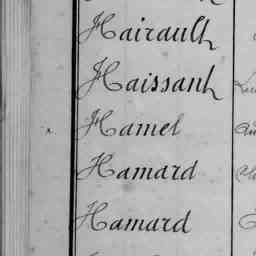 Hairault
Haissant
Hamel
Hamard
Hamard